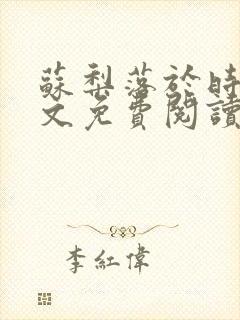 蘇梨落於時
文免費閱讀
李紅偉